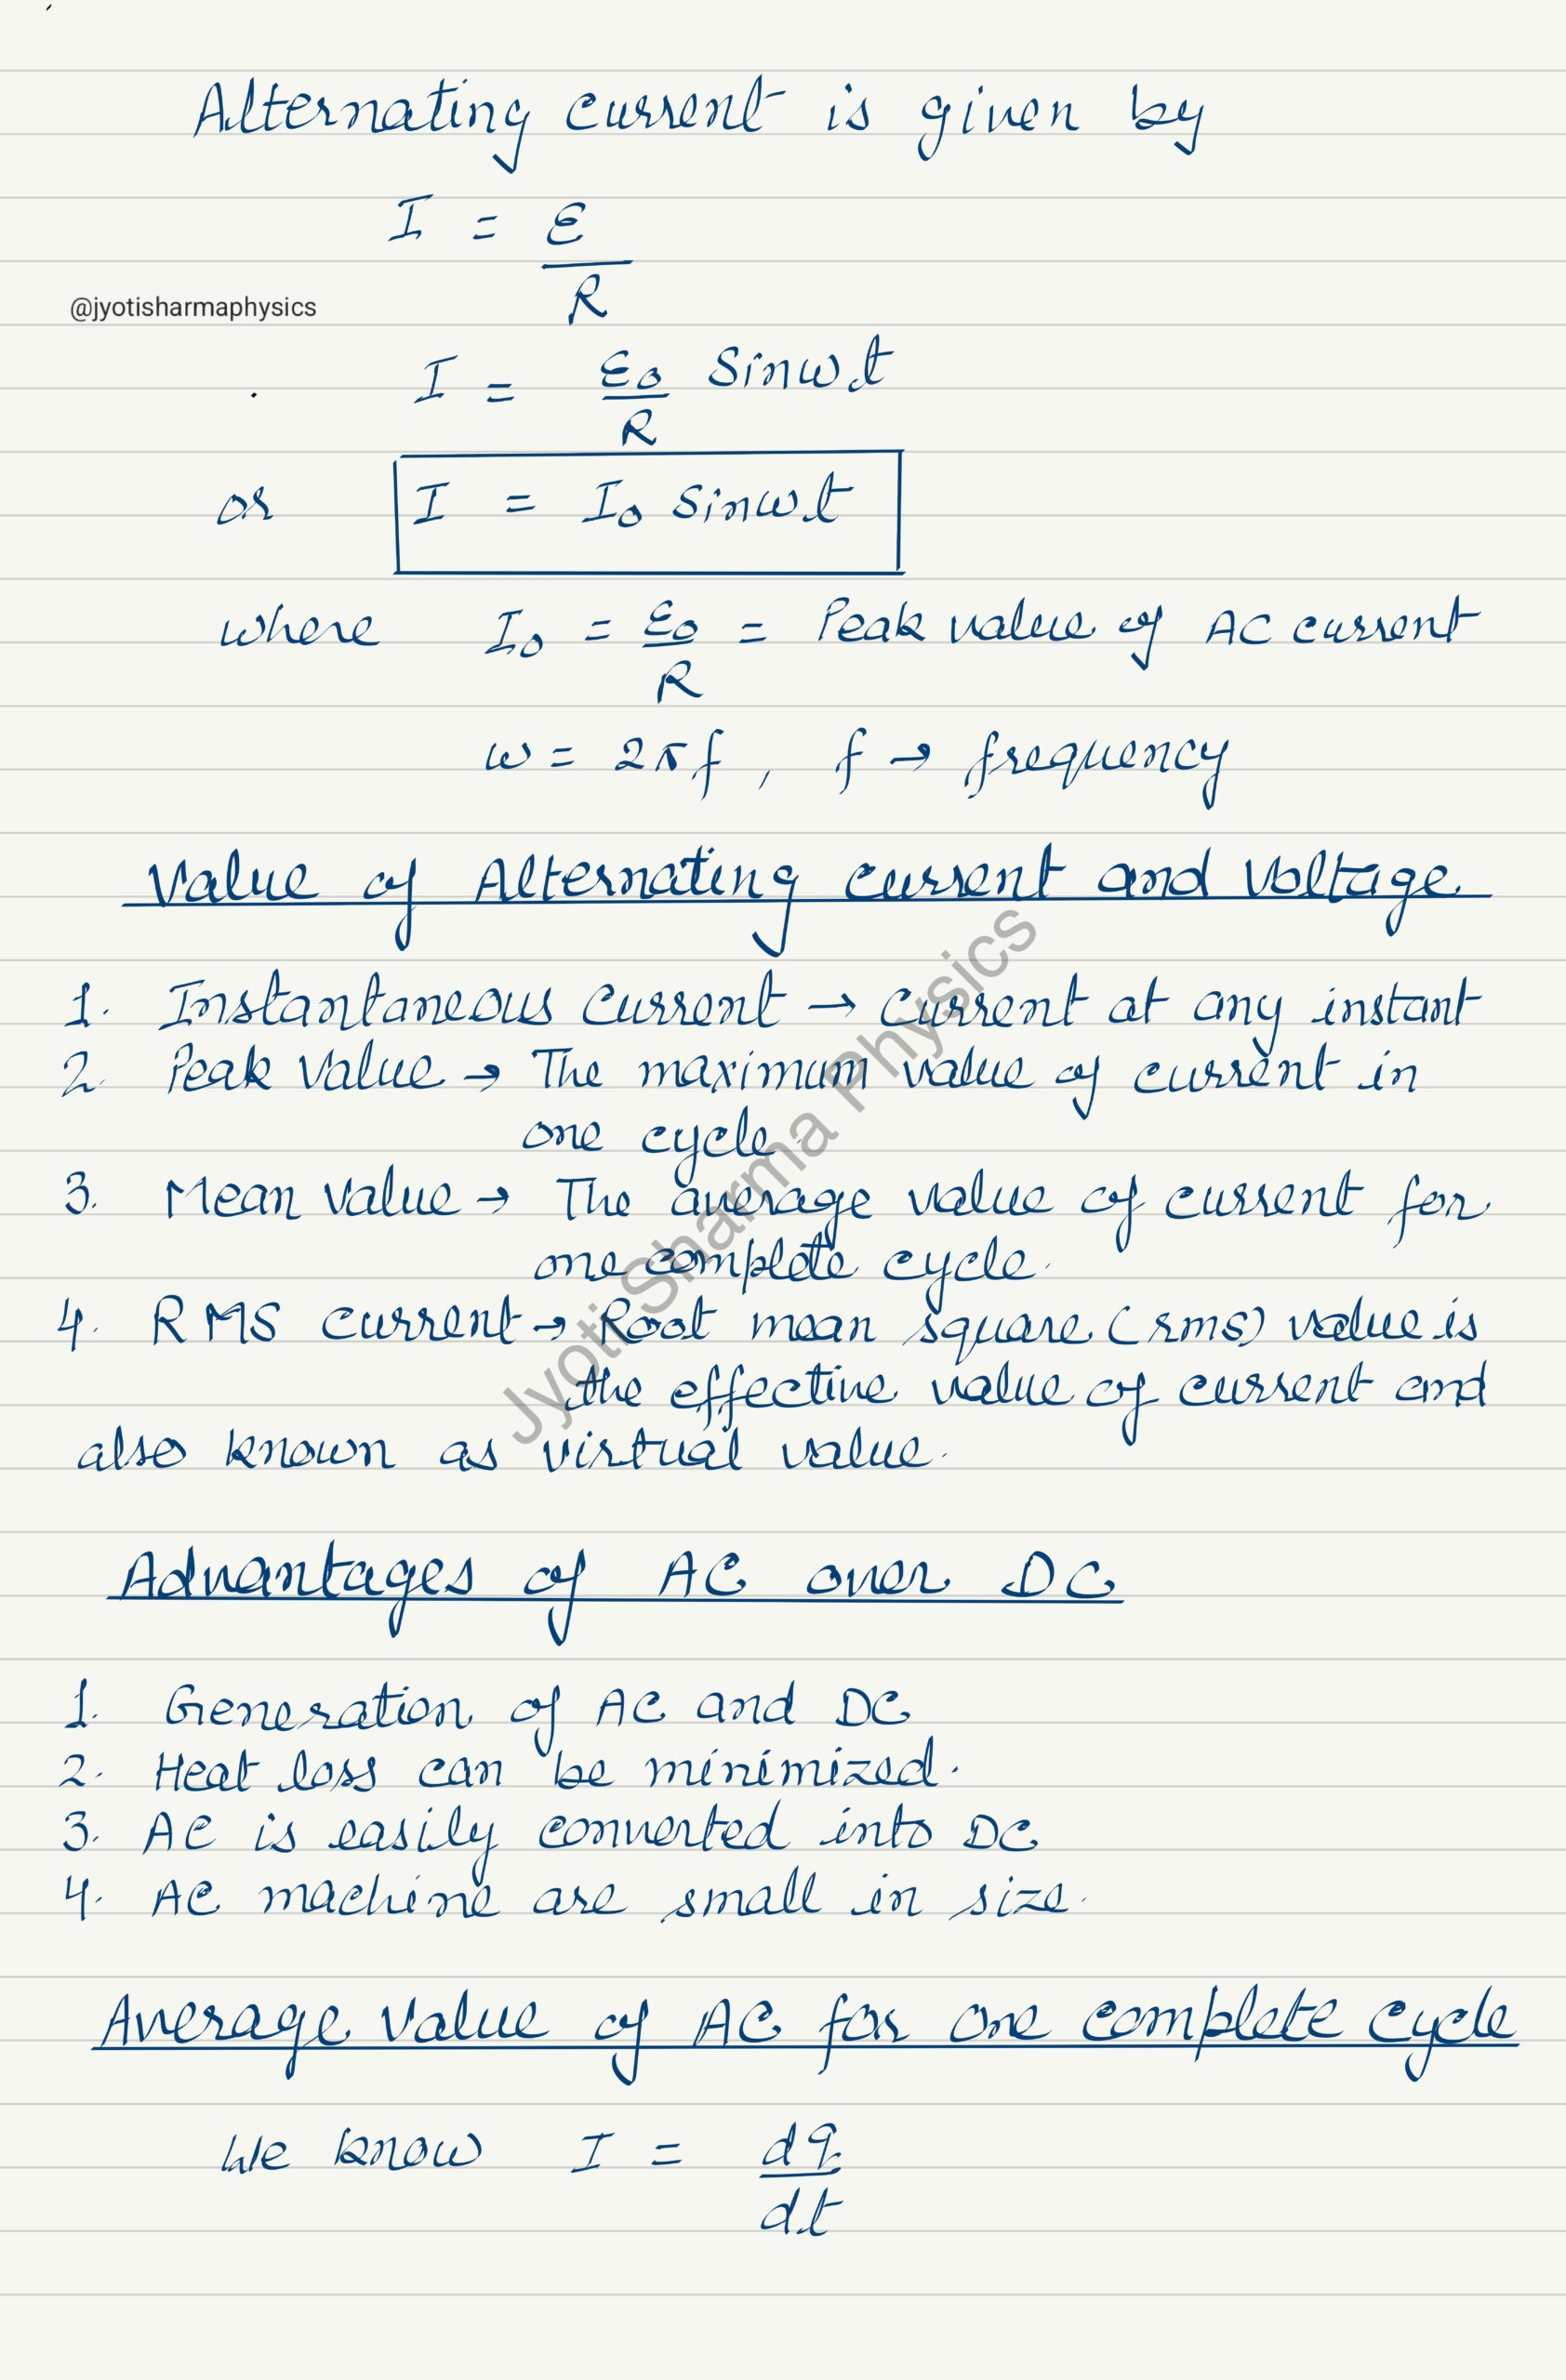 Alternating current is given by
I = ε/R
@jyotisharmaphysics
I = ε₀/R Sinωt
or I = I₀ sinωt
where I₀ = ε₀/R = Peak value of AC current
ω = 2πf, f → frequency
Value of Alternating current and Voltage
1. Instantaneous current → Current at any instant
2. Peak Value → The maximum value of current in
one cycle.
3. Mean Value → The average value of current for
one complete cycle.
4. RMS current → Root mean square (rms) value is
the effective value of current and
also known as virtual value.
Jyoti Sharma Physics
Advantages of AC over DC
1. Generation of AC and DC
2. Heat loss can be minimized.
3. AC is easily converted into DC
4. AC machine are small in size.
Average Value of AC for one complete cycle
We know I = dq/dt